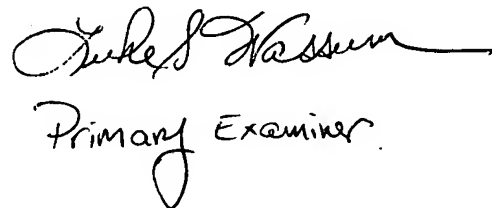 Luke S Wassum
Primary Examiner.